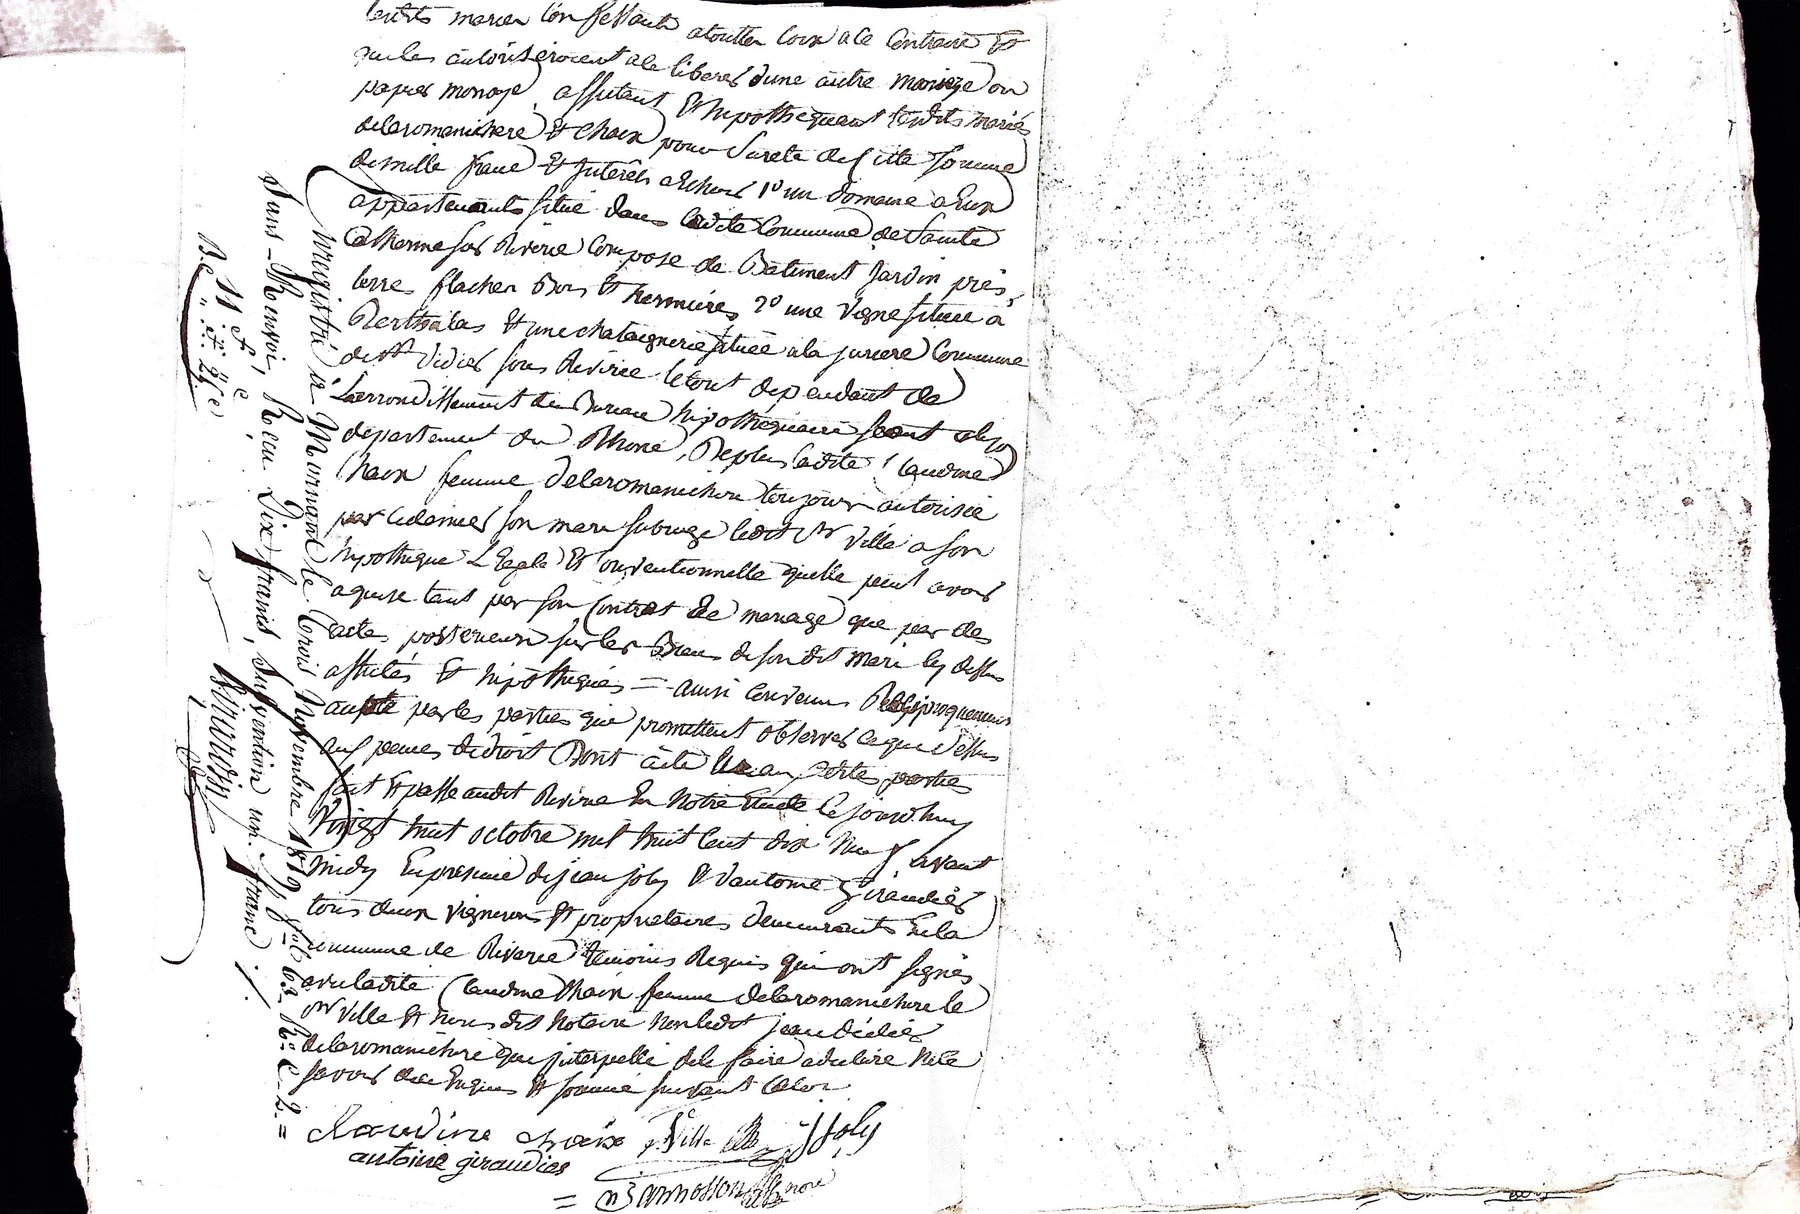 lesdits mariés a toutter loix a ce Contraire Et
qui les autoriseroient a se liberer d'une autre maniere ou
papier monoye, affectent Et hipothequent lesdits mariés
delaromanichere Et Chaix pour Sureté de cette Somme
de mille franc Et Interets a Echeoir 1º un Domaine a Eux
appartenants situé dans ladite Commune de Sainte
Catherine sur Riverie Composé de Batiment Jardin prés
terres flacher Bois Et hermiéres 2º une vigne située à
et une chataignerie située a la Commune
de St Didier sous Riverie le tout dependant de
L'arrondissement du Bureau hipothequaire seant a Lyon
departement du Rhone, De plus ladite Claudine
Chaix femme Delaromanichere toujours autorisée
par cedernier son mari subroge ledit Sr Ville a son
hipotheque Legale Et Conventionnelle quelle peut avoir
aquise tant par son Contrat de mariage que par des
actes posterieurs sur les Biens de son dit mari cy dessus
affectés Et hipothequés = ainsi Convenu Reciproquement
accepté par les parties qui promettent observer ce que dessus
aux peines de droit Dont acte Lu aux dites parties
fait Et passé audit Riverie En Notre Etude Le jourd'huy
Vingt huit octobre mil huit Cent dix Neuf avant
midy En presence de jean joly Et d'antoine Giraudier
tous deux vignerons Et proprietaires demeurants En la
commune de Riverie temoins Requis qui ont signés
avec ladite Claudine Chaix femme Delaromanichere le
Sr Ville Et nous dit Notaire Non ledit jean didier
delaromanichere qui interpellé de le faire a declaré Ne le
savoir de ce Enquis Et sommé suivant la loi
Claudine chaix Ville J Joly
antoine giraudier
=
Enregistré à Mornant le Trois Novembre 1819 fol. 63 Rº C. 2 =
Sans Renvoi, Reçu Dix francs, Subvention un franc.
D.e 11 f. c